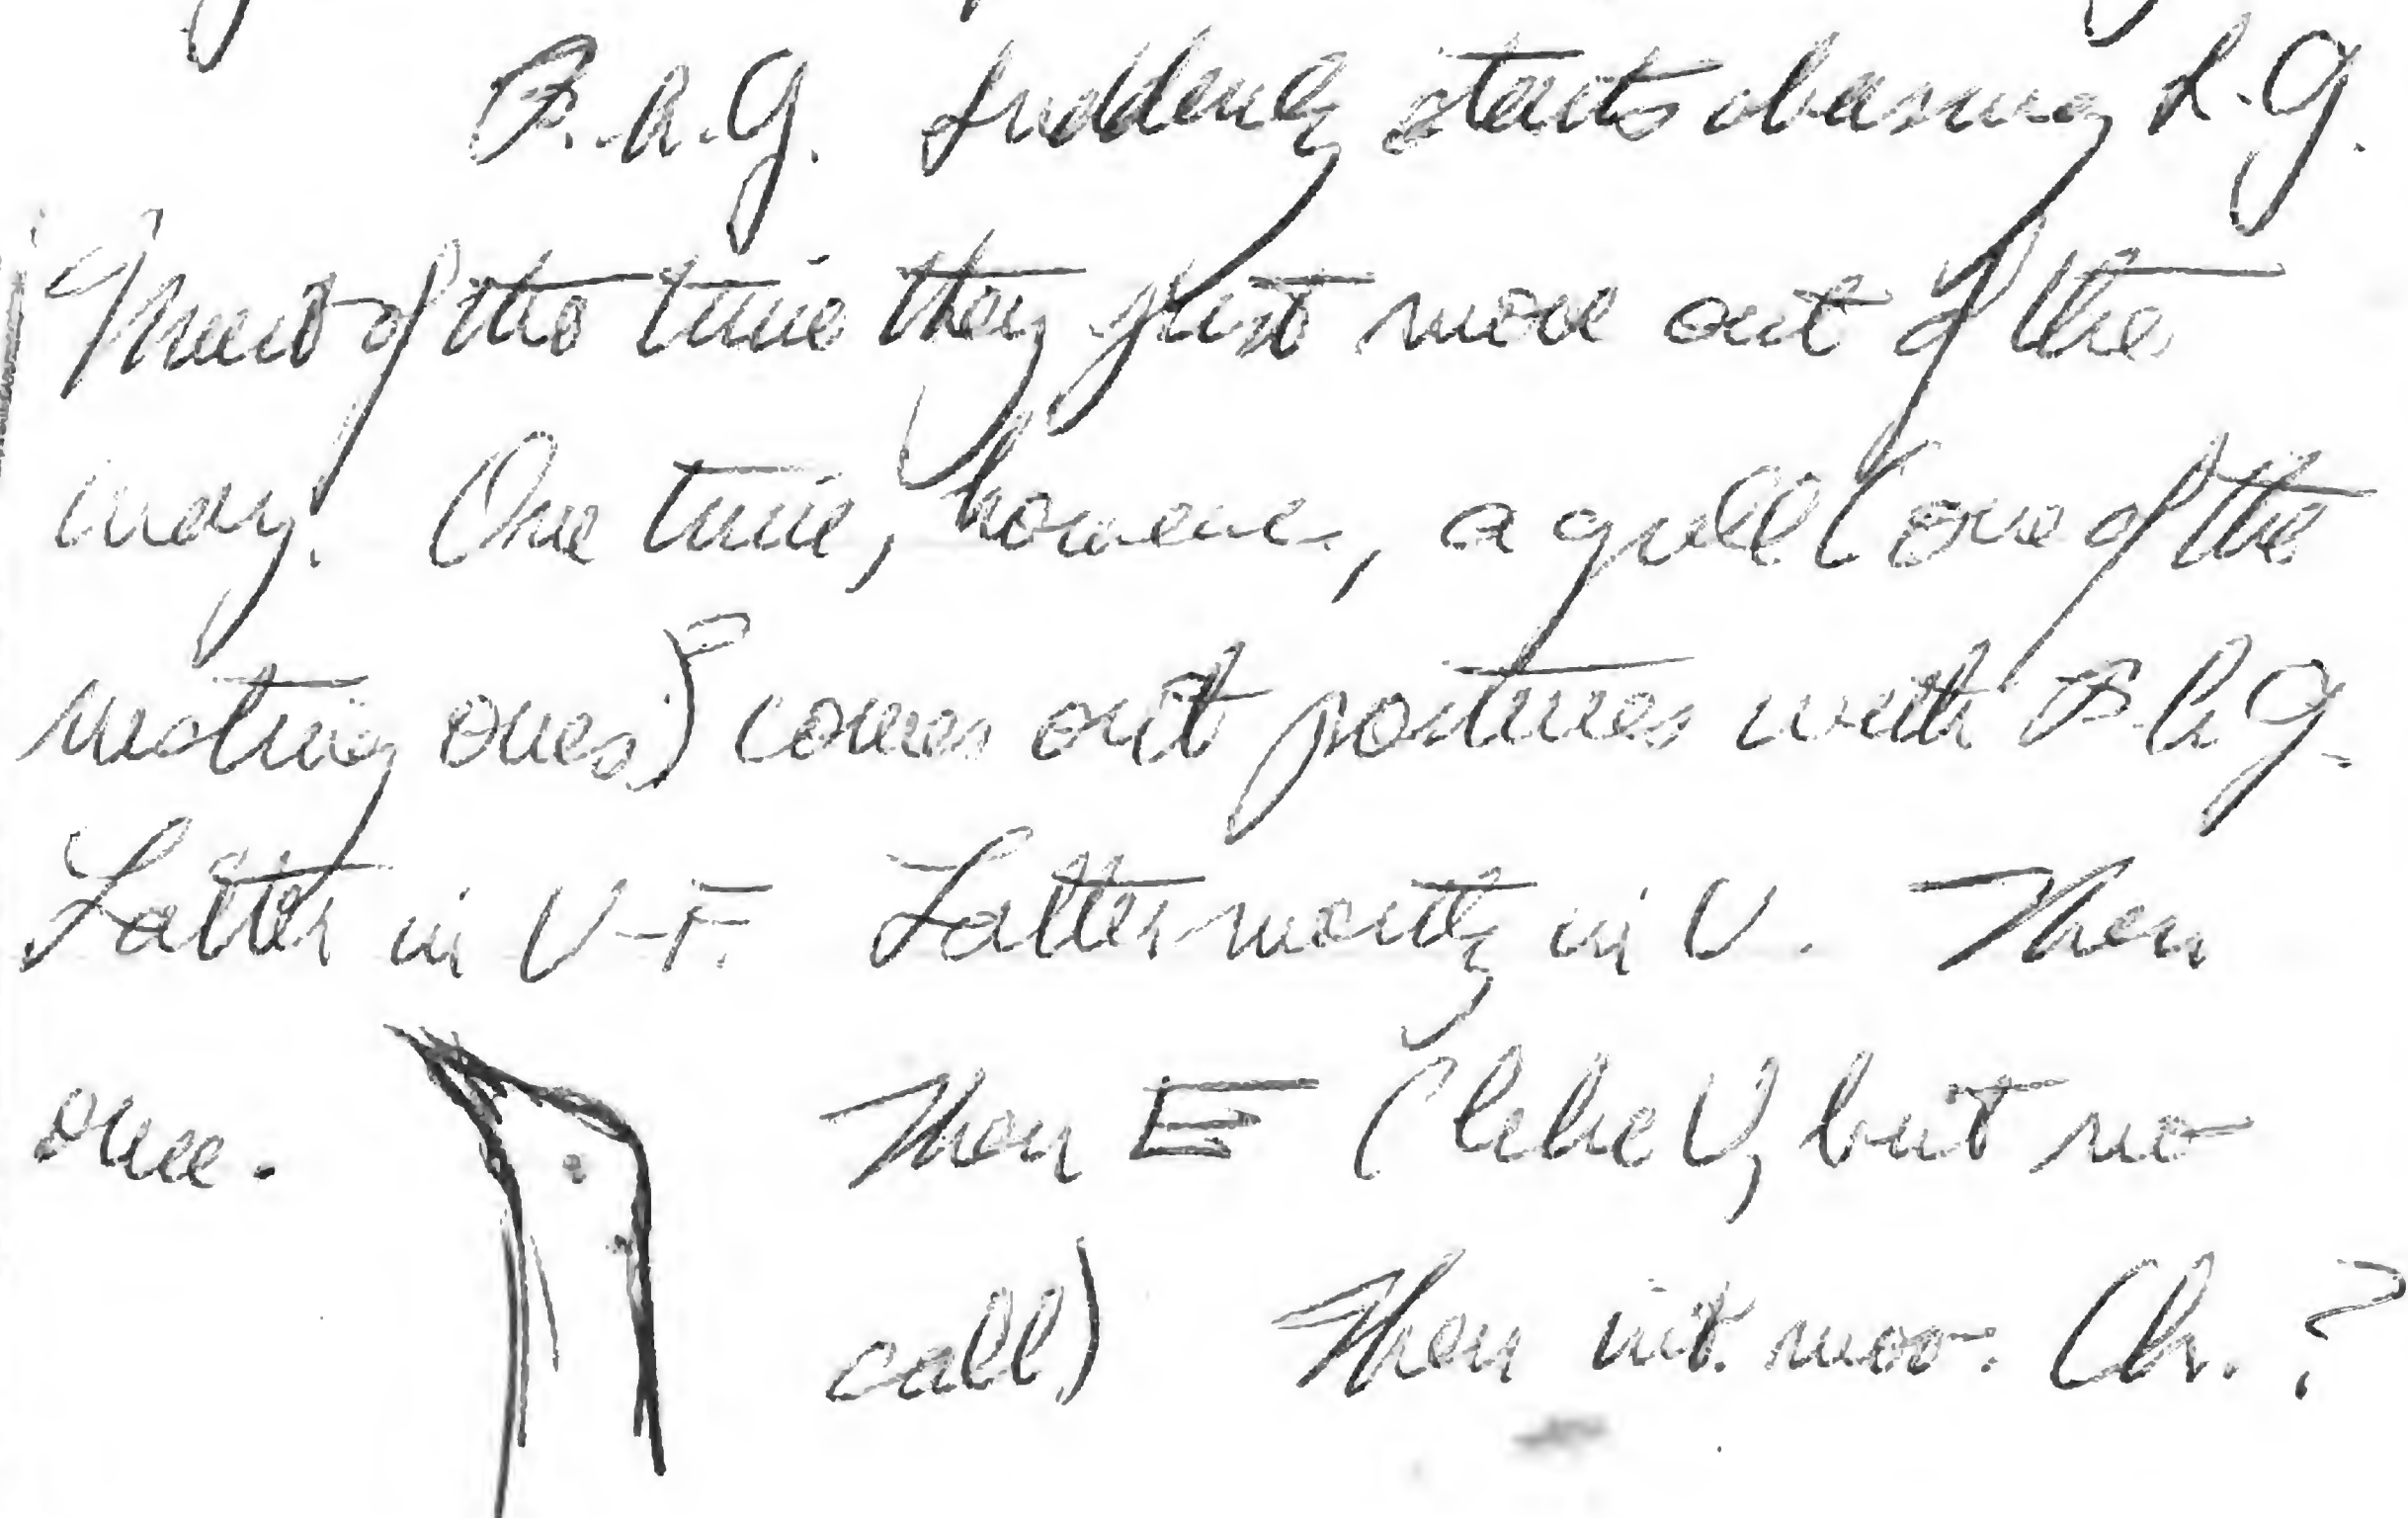 B.h.G. suddenly starts chasing L.G.
Most of the time they just move out of the
way. One time, however, a gull (one of the
nesting ones?) comes out postures with B.h G.
Latter in U-F. Latter mostly in U. Then
once.
Then E (like U, but no
call) Then int. mov. Ch.?